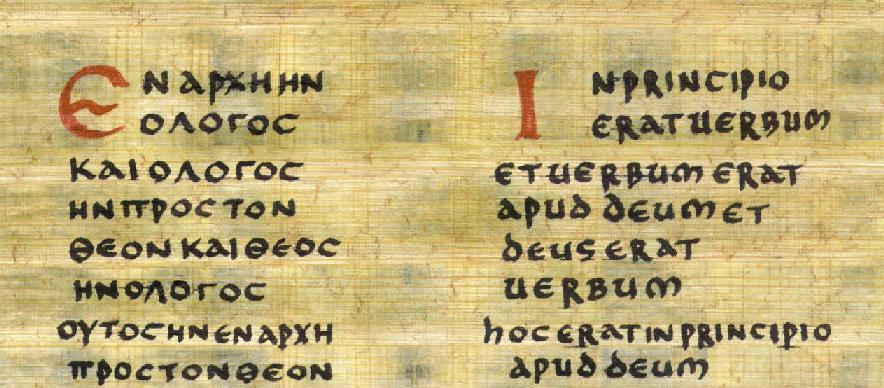 ΕΝ ΑΡΧΗ ΗΝ
Ο ΛΟΓΟϹ
ΚΑΙ Ο ΛΟΓΟϹ
ΗΝ ΠΡΟϹ ΤΟΝ
ΘΕΟΝ ΚΑΙ ΘΕΟϹ
ΗΝ Ο ΛΟΓΟϹ
ΟΥΤΟϹ ΗΝ ΕΝ ΑΡΧΗ
ΠΡΟϹ ΤΟΝ ΘΕΟΝ
IN PRINCIPIO
ERAT UERBUM
ET UERBUM ERAT
APUD DEUM ET
DEUS ERAT
UERBUM
HOC ERAT IN PRINCIPIO
APUD DEUM